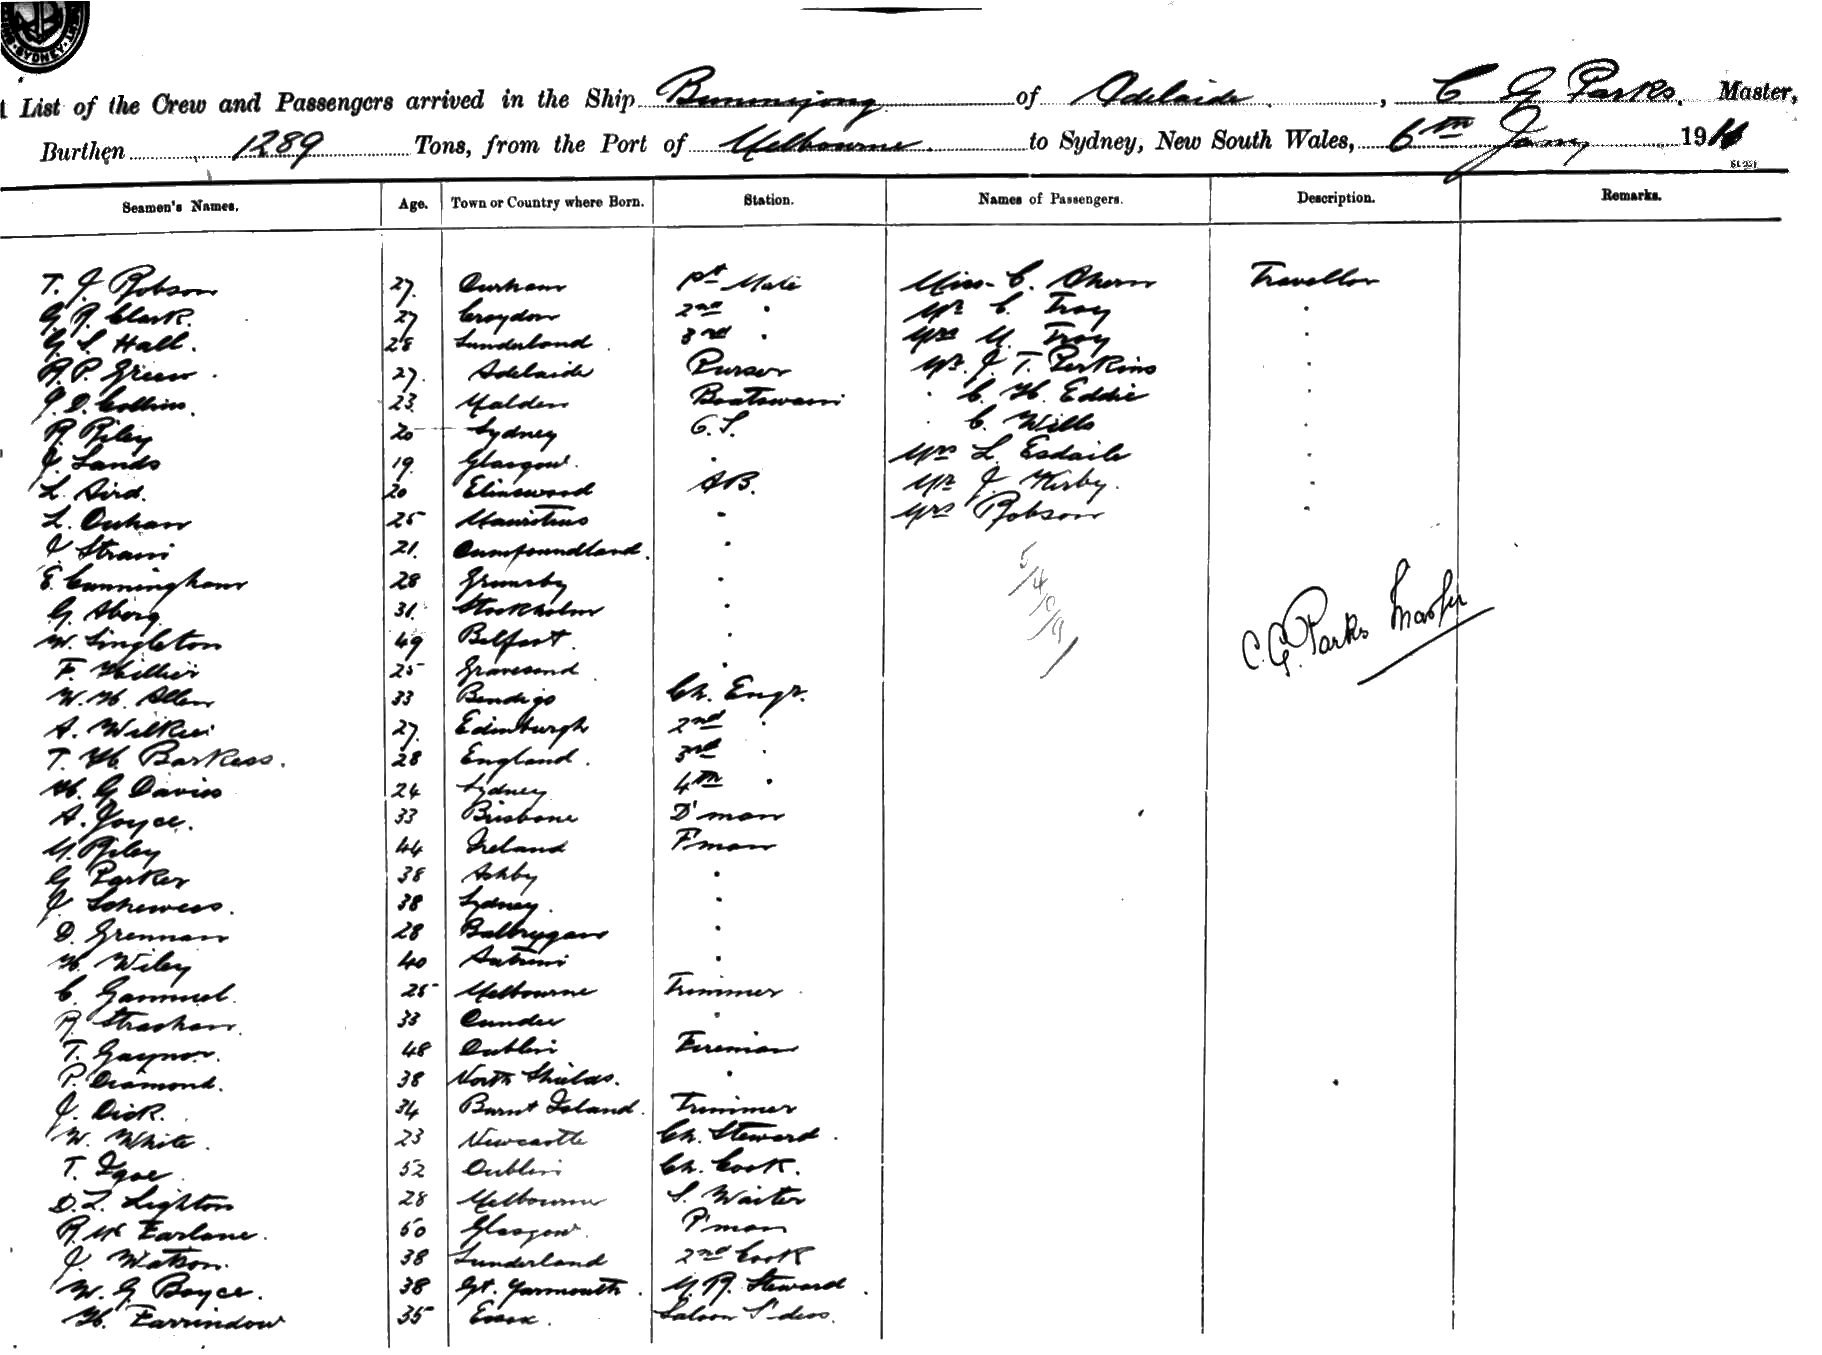 SYDNEY
List of the Crew and Passengers arrived in the Ship Buninyong of Adelaide, C G Parks, Master,
Burthen 1289 Tons, from the Port of Melbourne to Sydney, New South Wales, 6th Jany 191
Seamen's Names. Age. Town or Country where Born. Station. Names of Passengers. Description. Remarks.
T. J Robson 27 Durham 1st Mate Miss C. Ahern Traveller
G R Clark. 27 Croydon 2nd " Mr C. Troy "
G S Hall. 28 Sunderland 3rd " Mrs M. Troy "
R. P. Green 27 Adelaide Purser Mr. J. T. Perkins "
J. D. Collins. 23 Malden Boatswain " C. H. Eddie "
R Riley 20 Sydney C. Wills "
J. Sands 19 Glasgow " Mrs L. Esdaile "
L. Aird. 20 A B. Mr J. Kirby. "
L. 25 Mauritius " Mrs Robson "
J 21.
E. Cunningham 28 Grimsby "
G. Aborg 31. Stockholm "
W. Singleton 49 Belfast "
F. Hillier 25 Gravesend "
C. G. Parks Master
W. H. Allen 33 Bendigo Ch. Engr.
A. Wilkie 27 Edinburgh 2nd "
T. H. Barkess. 28 England. 3rd "
H. G Davies 24 Sydney 4th "
A. Joyce. 33 Brisbane D'man
M. Riley 44 Ireland F'man
G Parker 38 Ashby "
J Schewess. 38 Sydney. "
D. Grennan 28 Balbrygan "
H. Wiley 40 Antrim "
C. Gammel. 25 Melbourne Trimmer
R Strachan. 33 Dundee "
T. Gaynor. 48 Dublin Fireman
P. Diamond. 38 North Shields. "
J. Dick. 34 Burnt Island. Trimmer
W. White. 23 Newcastle Ch. Steward.
T. Igoe 52 Dublin Ch. Cook.
D. L. Lighton 28 Melbourne S. Waiter
R. Mc Farlane. 50 Glasgow P'man
J. Watson. 38 Sunderland 2nd Cook
W. G Boyce. 38 Gt. Yarmouth. M. R. Steward.
H. Farrindow 35 Essex. Saloon S'dess.